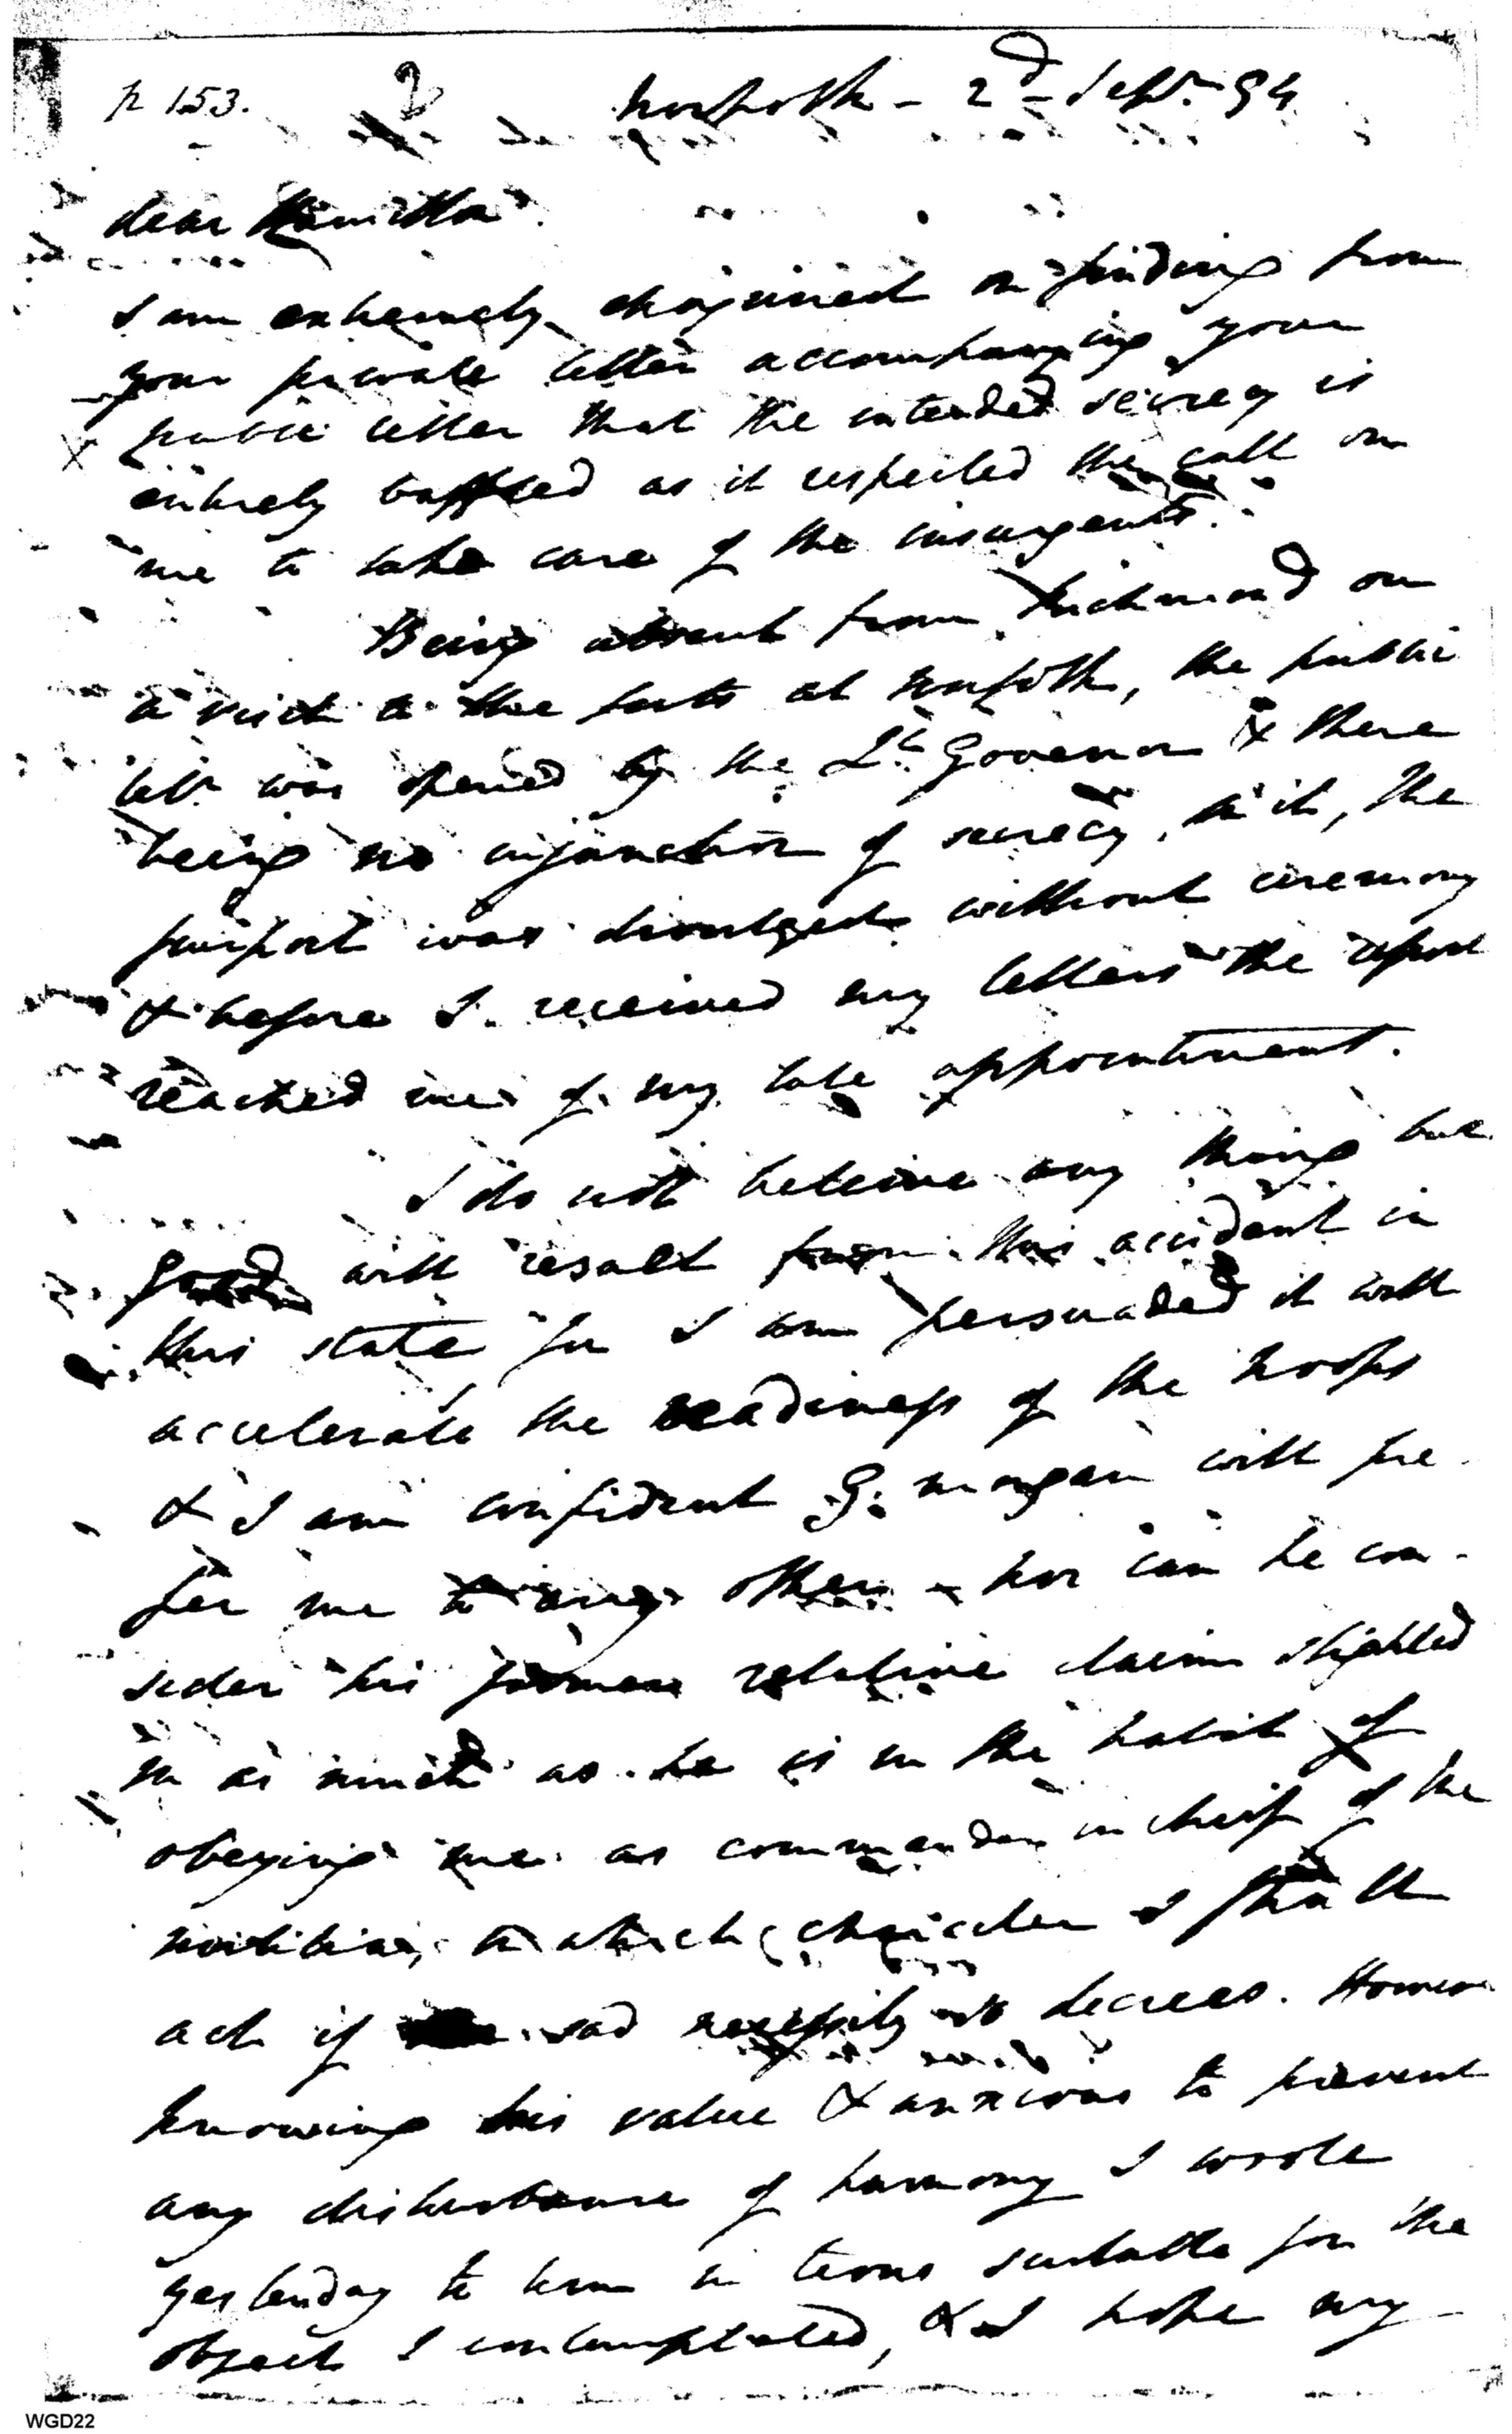 p 153.
Norfolk - 2d - Sepr. 94
dear Hamilton
I am extremely chagrined on finding from
your private letter accompanying your
public letter that the intended secrecy is
entirely baffled as it respected the call on
me to take care of the insurgents.
Being absent from Richmond on
a visit to the forts at Norfolk, the public
letr was opened by the Lt. Governor & there
being no injunction of secrecy in it, the
purport was divulged without ceremony
& before I received my letters the report
reached me of my late appointment.
I do not believe any thing but
good will result from this accident in
this state for I am persuaded it will
accelerate the readiness of the troops
& I am confident G. morgan will pre
fer me to any other - nor can he con-
sider his former relative claim slighted
in as much as he is in the habit of
obeying me as commander in cheif of the
militia, in which character I shall
act if sad necessity so decrees. However
knowing his value & anxious to prevent
any disturbance of harmony I wrote
yesterday to him in terms suitable for the
object I contemplated, & I hope my
WGD22